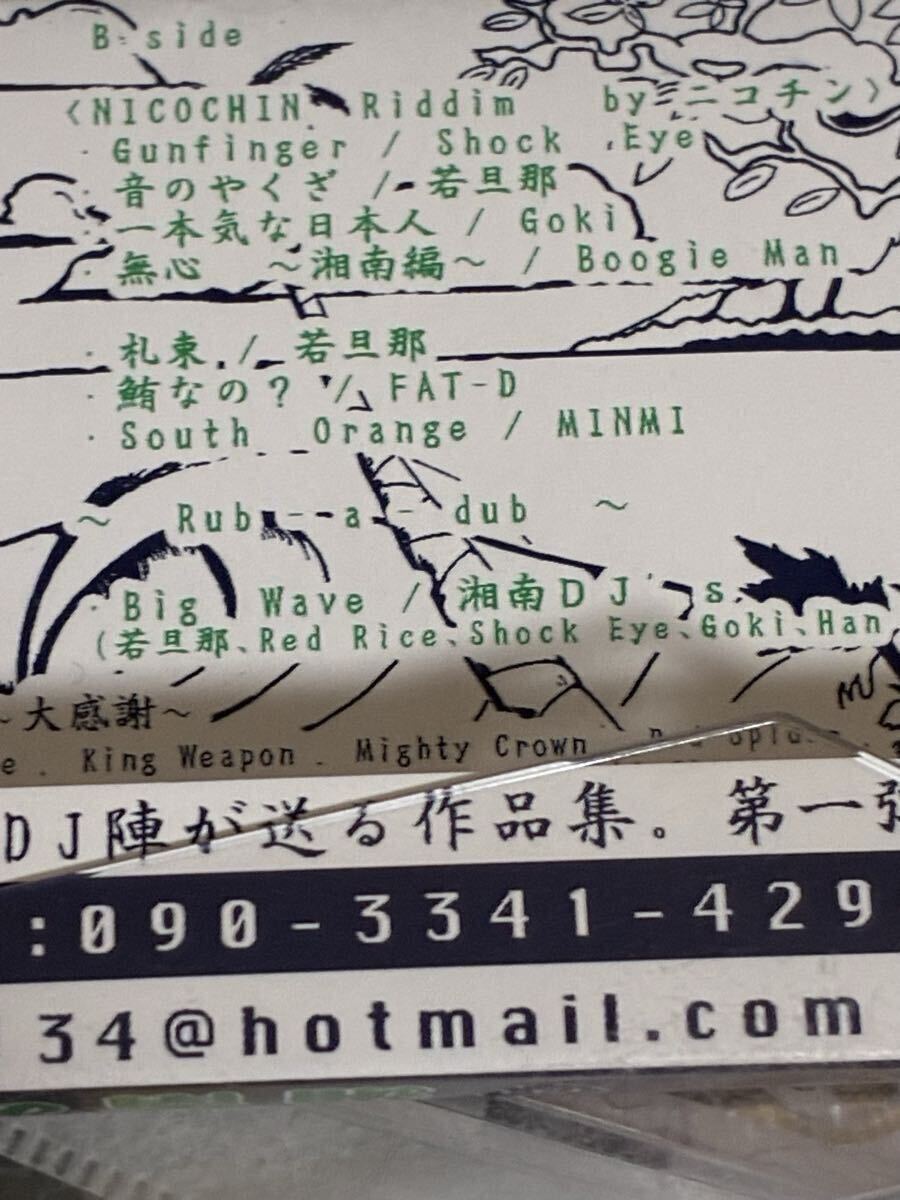 B-side
<NICOCHIN Riddim by ニコチン>
・Gunfinger / Shock Eye
・音のやくざ / 若旦那
・一本気な日本人 / Goki
・無心 ～湘南編～ / Boogie Man
・札束 / 若旦那
・鮪なの? / FAT-D
・South Orange / MINMI
～ Rub-a-dub ～
・Big Wave / 湘南DJ's
(若旦那、Red Rice、Shock Eye、Goki、Han
～大感謝～
e . King Weapon . Mighty Crown .
DJ陣が送る作品集。第一弾
:090-3341-429
34@hotmail.com